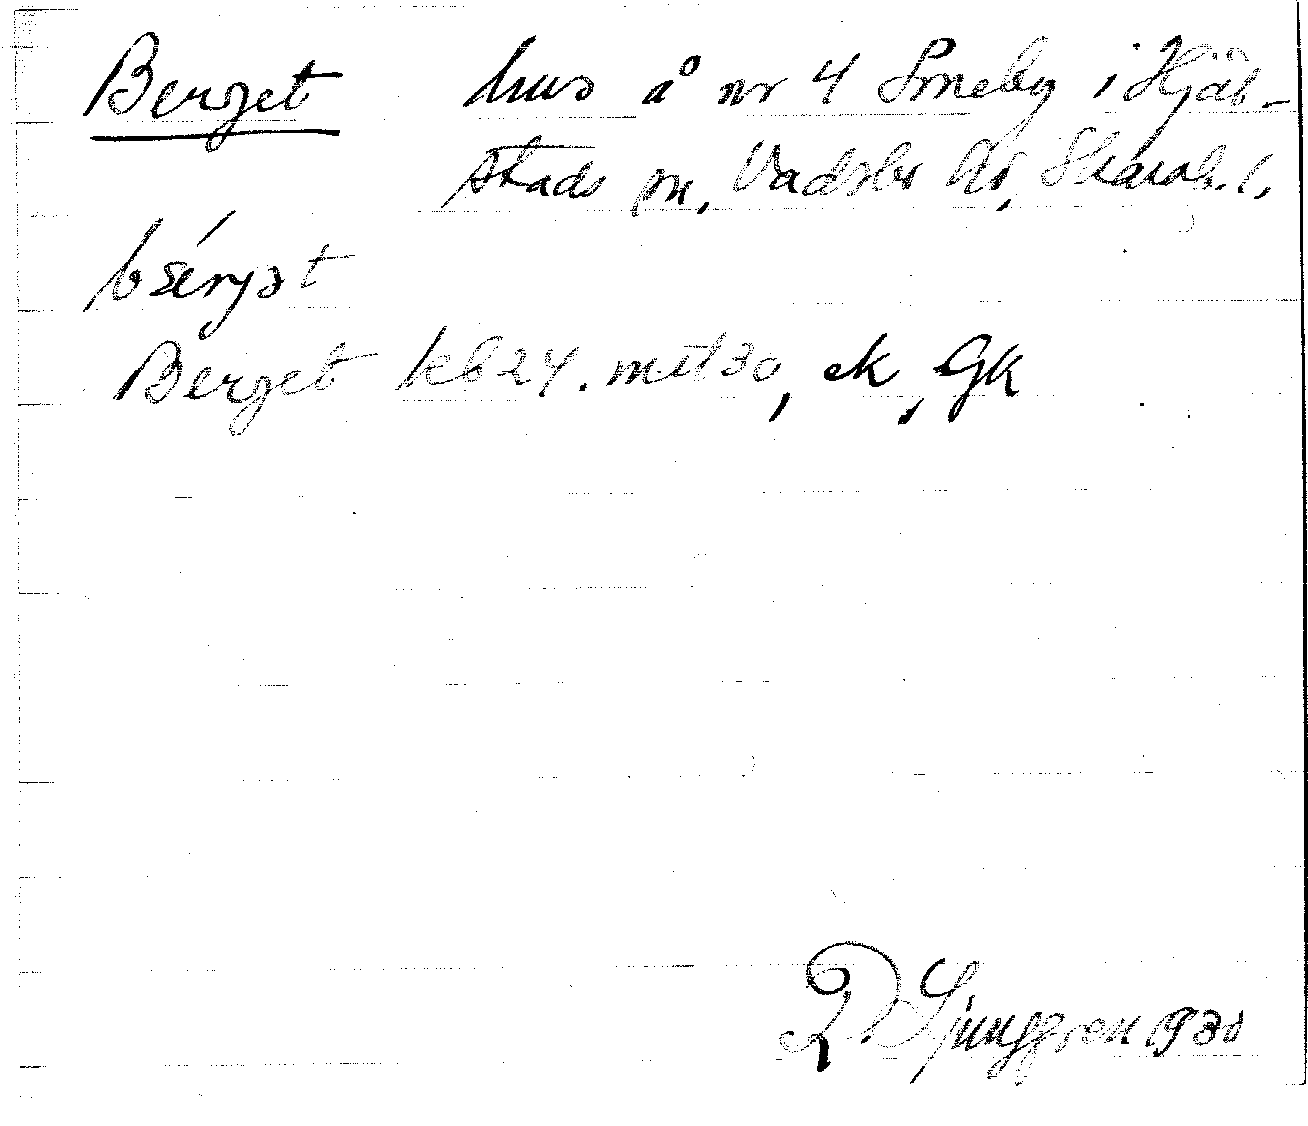 Berget hus å nr 4 Smeby i Hjäl-
stads sn, Vadsbo hd, Skarab. l.
bærjət
Berget kb 24. mtl 30, ek, Gk
R Ljunggren 1930